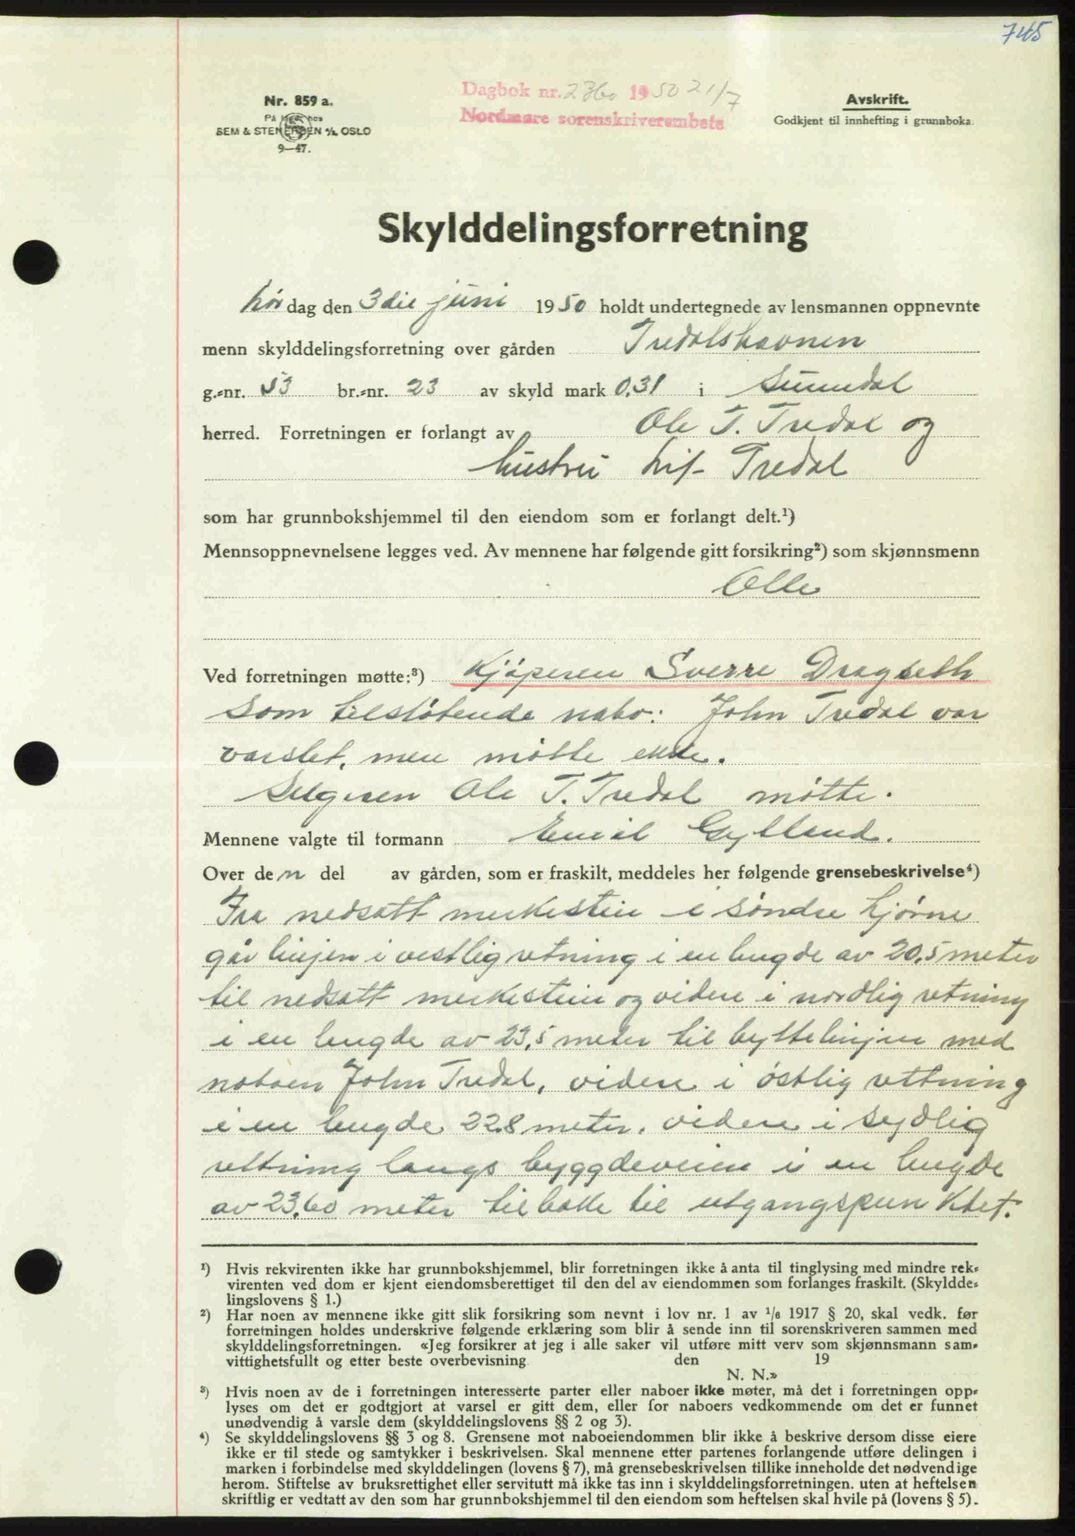 745
Nr. 859 a.
På lager hos
SEM & STENERSEN A/S, OSLO
9—47.
Dagbok nr. 2360 1950 21/7
Nordmøre sorenskriverembete
Avskrift.
Godkjent til innhefting i grunnboka.
Skylddelingsforretning
Lør dag den 3die juni 1950 holdt undertegnede av lensmannen oppnevnte
menn skylddelingsforretning over gården Tredalshavnen
g.-nr. 53 br.-nr. 23 av skyld mark 0,31 i Sunndal
herred. Forretningen er forlangt av Ole T. Tredal og
hustru Lif Tredal
som har grunnbokshjemmel til den eiendom som er forlangt delt.¹)
Mennsoppnevnelsene legges ved. Av mennene har følgende gitt forsikring²) som skjønnsmenn
Alle
Ved forretningen møtte:³) Kjøperen Sverre Dragseth
Som tilstøtende nabo: John Tredal var
varslet, men møtte ikke.
Selgeren Ole T. Tredal møtte.
Mennene valgte til formann Emil Gylland.
Over den del av gården, som er fraskilt, meddeles her følgende grensebeskrivelse⁴)
Fra nedsatt merkestein i søndre hjørne
går linjen i vestlig retning i en lengde av 20,5 meter
til nedsatt merkestein og videre i nordlig retning
i en lengde av 23,5 meter til byttelinjen med
naboen John Tredal, videre i østlig rettning
i en lengde 22.8 meter, videre i sydlig
rettning langs byggdeveien i en lengde
av 23,60 meter tilbake til utgangspunktet.
¹) Hvis rekvirenten ikke har grunnbokshjemmel, blir forretningen ikke å anta til tinglysing med mindre rek-
virenten ved dom er kjent eiendomsberettiget til den del av eiendommen som forlanges fraskilt. (Skyldde-
lingslovens § 1.)
²) Har noen av mennene ikke gitt slik forsikring som nevnt i lov nr. 1 av 1/6 1917 § 20, skal vedk. før
forretningen holdes underskrive følgende erklæring som blir å sende inn til sorenskriveren sammen med
skylddelingsforretningen. «Jeg forsikrer at jeg i alle saker vil utføre mitt verv som skjønnsmann sam-
vittighetsfullt og etter beste overbevisning. den 19
N. N.»
³) Hvis noen av de i forretningen interesserte parter eller naboer ikke møter, må det i forretningen opp-
lyses om det er godtgjort at varsel er gitt dem, eller for naboers vedkommende om det er funnet
unødvendig å varsle dem (skylddelingslovens §§ 2 og 3).
⁴) Se skylddelingslovens §§ 3 og 8. Grensene mot naboeiendommen blir ikke å beskrive dersom disse eiere
ikke er til stede og samtykker i beskrivelsen. Skal mennene etter partenes forlangende utføre delingen i
marken i forbindelse med skylddelingen (lovens § 7), må grensebeskrivelsen tillike inneholde det nødvendige
herom. Stiftelse av bruksrettighet eller servitutt må ikke tas inn i skylddelingsforretningen. uten at heftelsen
skriftlig er vedtatt av den som har grunnbokshjemmel til den eiendom som heftelsen skal hvile på (lovens § 5).